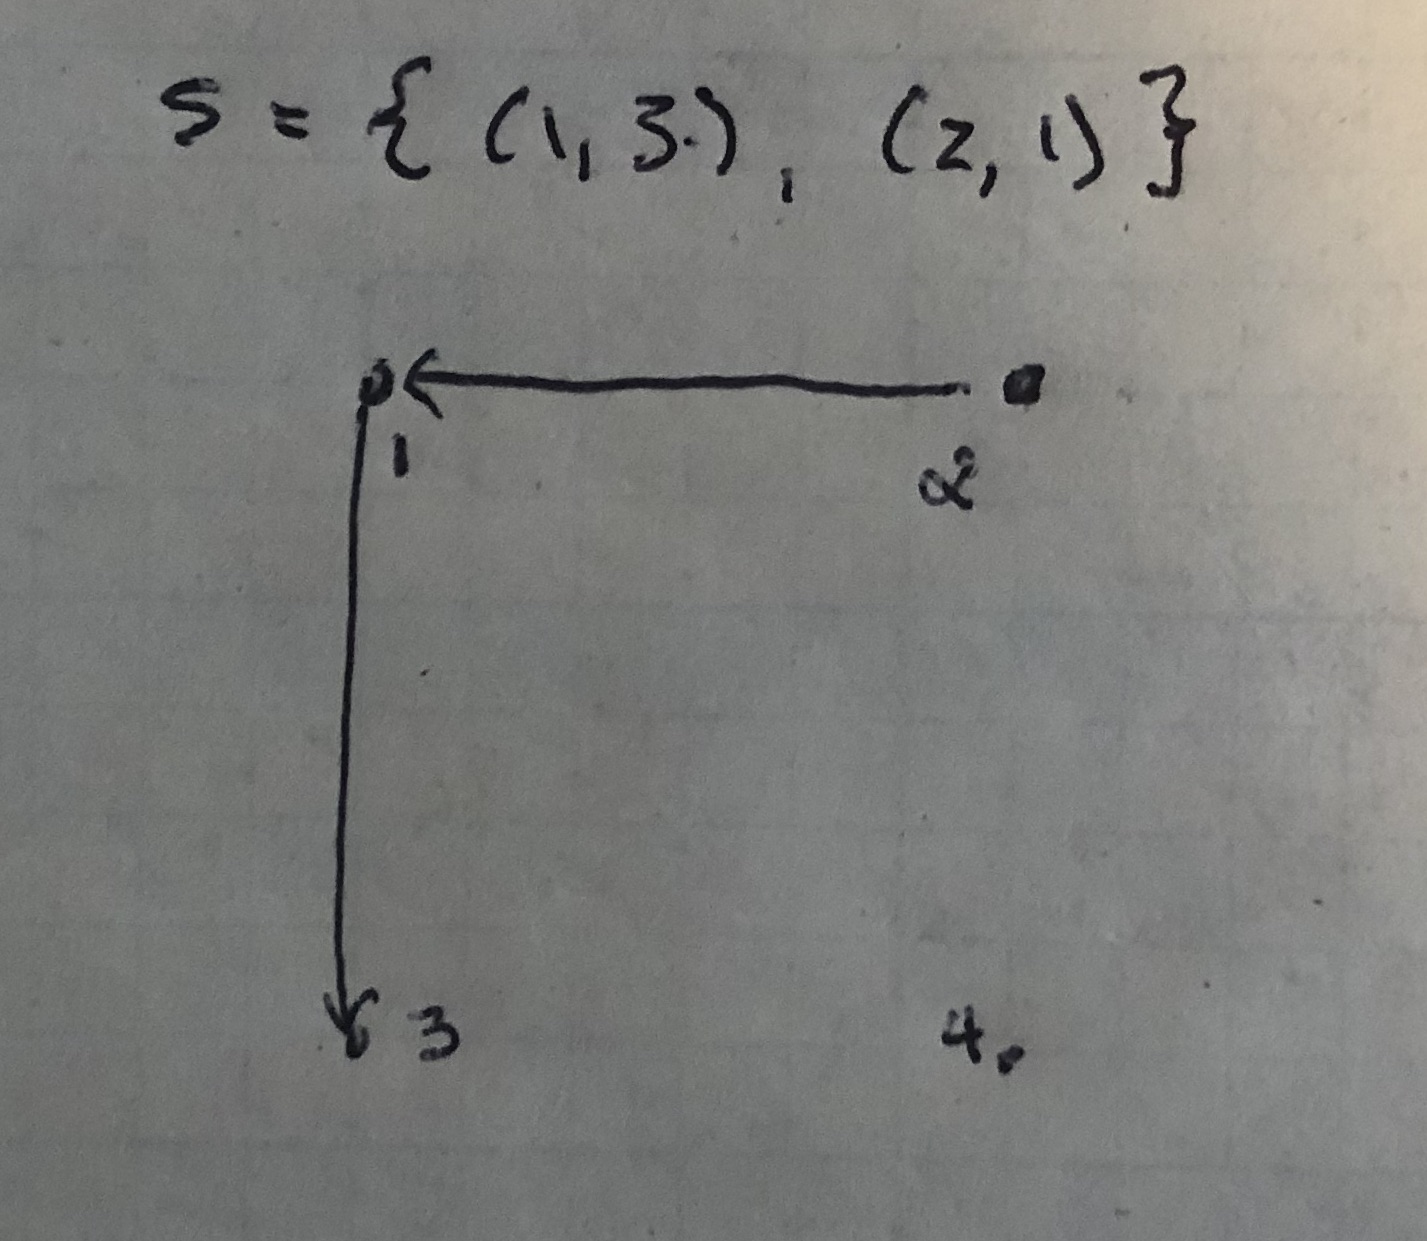 S = { (1, 3.), (2, 1) }
1 2
3 4.